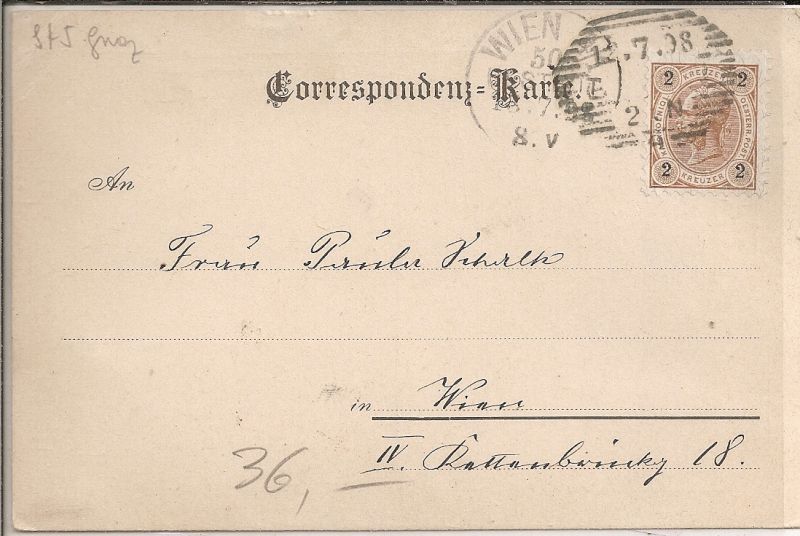 WIEN
50
8. V
.7.98
Correspondenz=Karte.
2 KREUZER 2
OESTERR. POST
2 KREUZER 2
An
Frau Paula Schalk
in Wien
IV. Kettenbrückg 18.
36,—